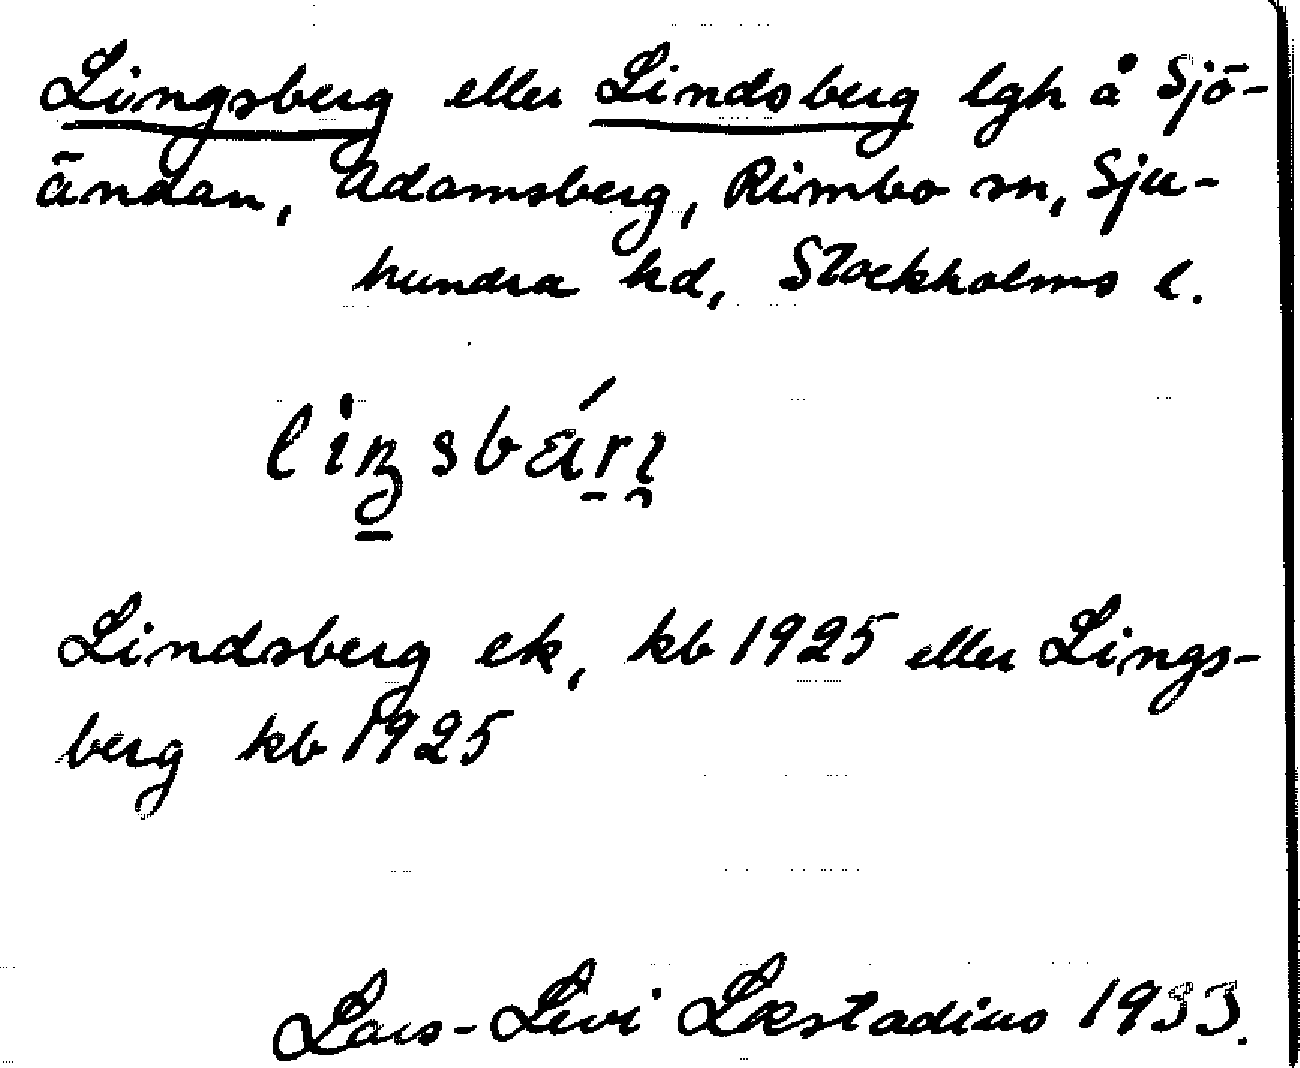 Lingsberg eller Lindsberg lgh å Sjö-
ändan, Adamsberg, Rimbo sn, Sju-
hundra hd, Stockholms l.
Lindsberg ek, kb 1925 eller Lings-
berg kb 1925
Lars-Levi Læstadius 1933.